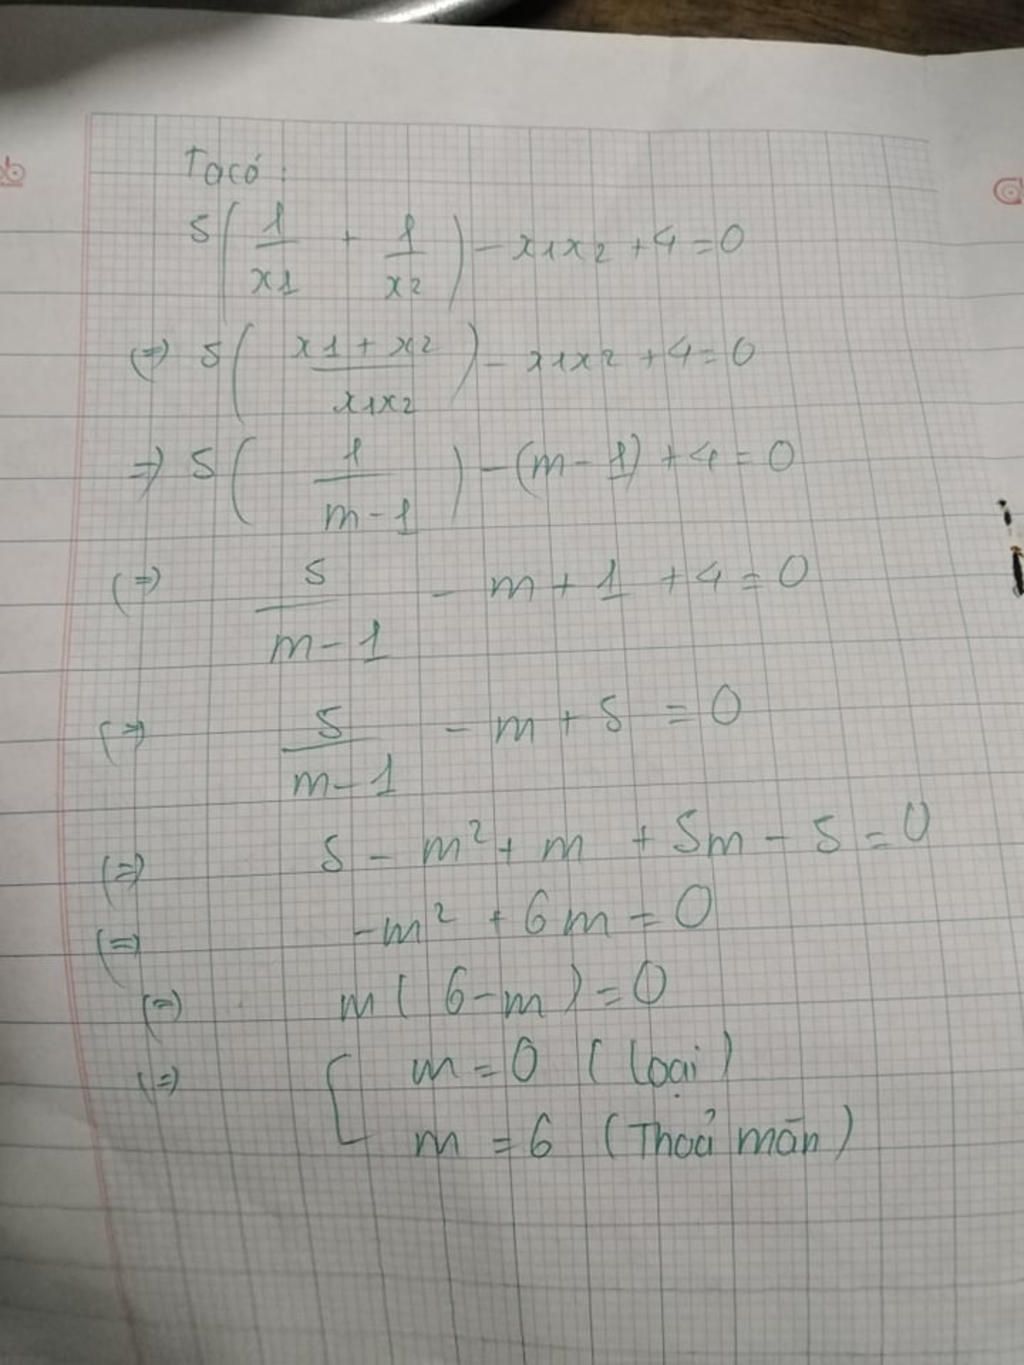 Ta có:
5(1/x1 + 1/x2) - x1x2 + 4 = 0
(=) 5(x1 + x2/x1x2) - x1x2 + 4 = 0
=) 5(1/m - 1) - (m - 1) + 4 = 0
(=) 5/m - 1 - m + 1 + 4 = 0
(=) 5/m - 1 - m + 5 = 0
(=) 5 - m² + m + 5m - 5 = 0
(=) -m² + 6m = 0
(=) m(6 - m) = 0
(=) [ m = 0 (Loại)
m = 6 (Thoả mãn)